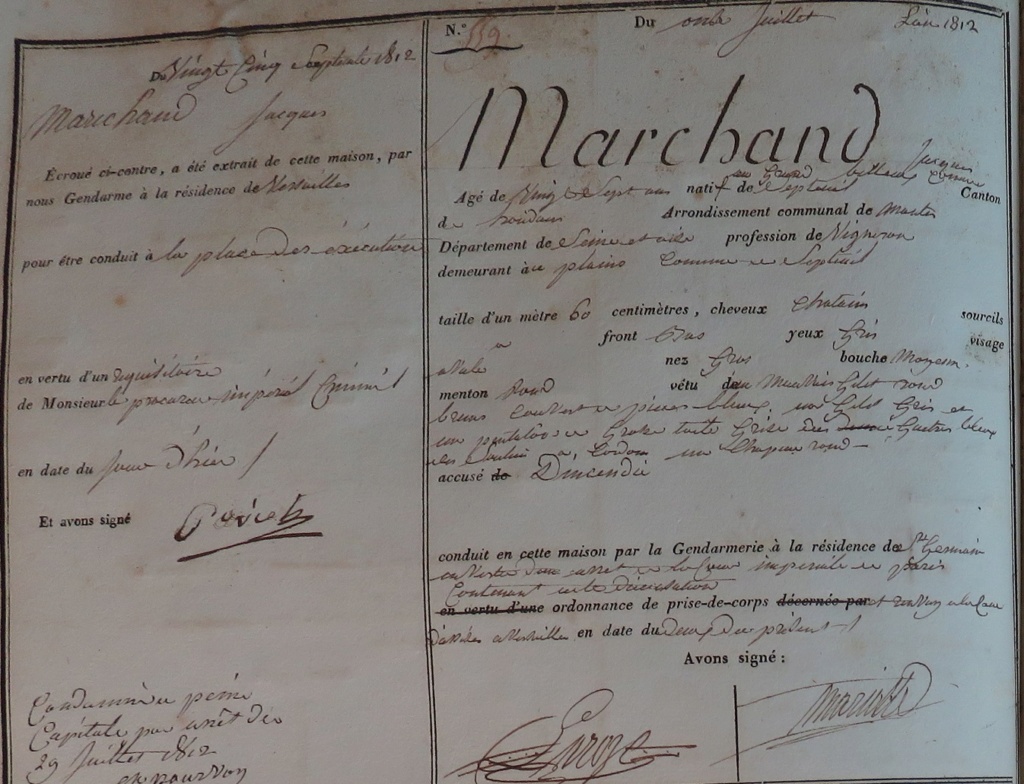 Du Vingt Cinq Septembre 1812
Marchand Jacques
Écroué ci-contre, a été extrait de cette maison, par
nous Gendarme à la résidence de Versailles
pour être conduit à la place des éxécutions
en vertu d'un réquisitoire
de Monsieur le procureur impérial Criminel
en date du jour d'hier
Et avons signé
Condamné a peine
Capitale par arrêt du
29 Juillet 1812
en pourvoy
N.º 559 Du onze Juillet L'an 1812
Marchand
Jacques
Agé de Vingt Sept ans natif de Septeuil Canton
de houdan Arrondissement communal de Mantes
Département de Seine et oise profession de Vigneron
demeurant au plains Commune de Septeuil
taille d'un mètre 60 centimètres, cheveux Chatains sourcils
front bas yeux Gris visage
ovale nez Gros bouche Moyenne
menton rond vêtu d'un Mauvais Gilet rond
brun Couvert de pieces bleux, un Gilet Gris et
un pantalon de Grosse toile Grise des Guetres bleux
des Souliers a Cordons un Chapeau rond
accusé de D'incendie
conduit en cette maison par la Gendarmerie à la résidence de St Germain
en Vertu d'un arret de la Cour imperiale de paris
Contenant
en vertu d'une ordonnance de prise-de-corps décernée par et renvoy a la Cour
d'assises a Versailles en date du deux du présent
Avons signé :